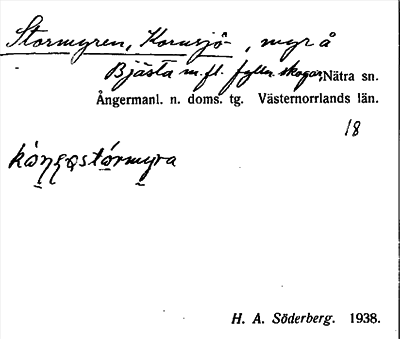 Stormyren, Kornsjö-, myr å
Bjästa m.fl. fylln. skogar. Nätra sn.
Ångermanl. n. doms. tg. Västernorrlands län.
18
H. A. Söderberg. 1938.